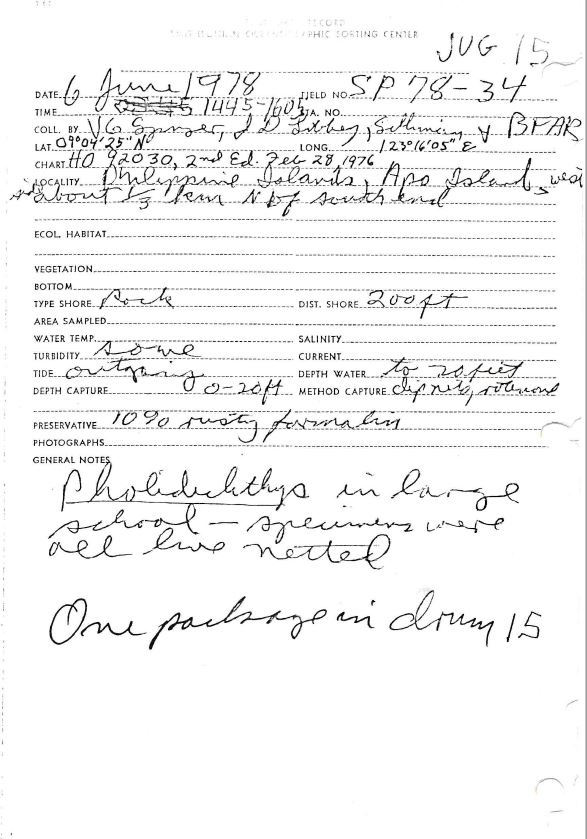 RECORD
SMITHSONIAN OCEANOGRAPHIC SORTING CENTER
JUG 15
DATE 6 June 1978 FIELD NO. SP 78-34
TIME 1445-1605 STA. NO.
COLL. BY VG Springer, J D Libbey, Silliman & BFAR
LAT. 09°04'25" N LONG. 123°16'05" E
CHART HO 92030, 2nd Ed. Feb 28, 1976
LOCALITY Philippine Islands, Apo Island, west
about 1/3 km N of south end
ECOL. HABITAT
VEGETATION
BOTTOM
TYPE SHORE Rock DIST. SHORE 200 ft
AREA SAMPLED
WATER TEMP. SALINITY
TURBIDITY some CURRENT
TIDE outgoing DEPTH WATER to 20 feet
DEPTH CAPTURE 0-20ft METHOD CAPTURE dip nets, rotenone
PRESERVATIVE 10% rusty formalin
PHOTOGRAPHS
GENERAL NOTES
Pholidichthys in large
school - specimens were
all live netted
One package in drum 15